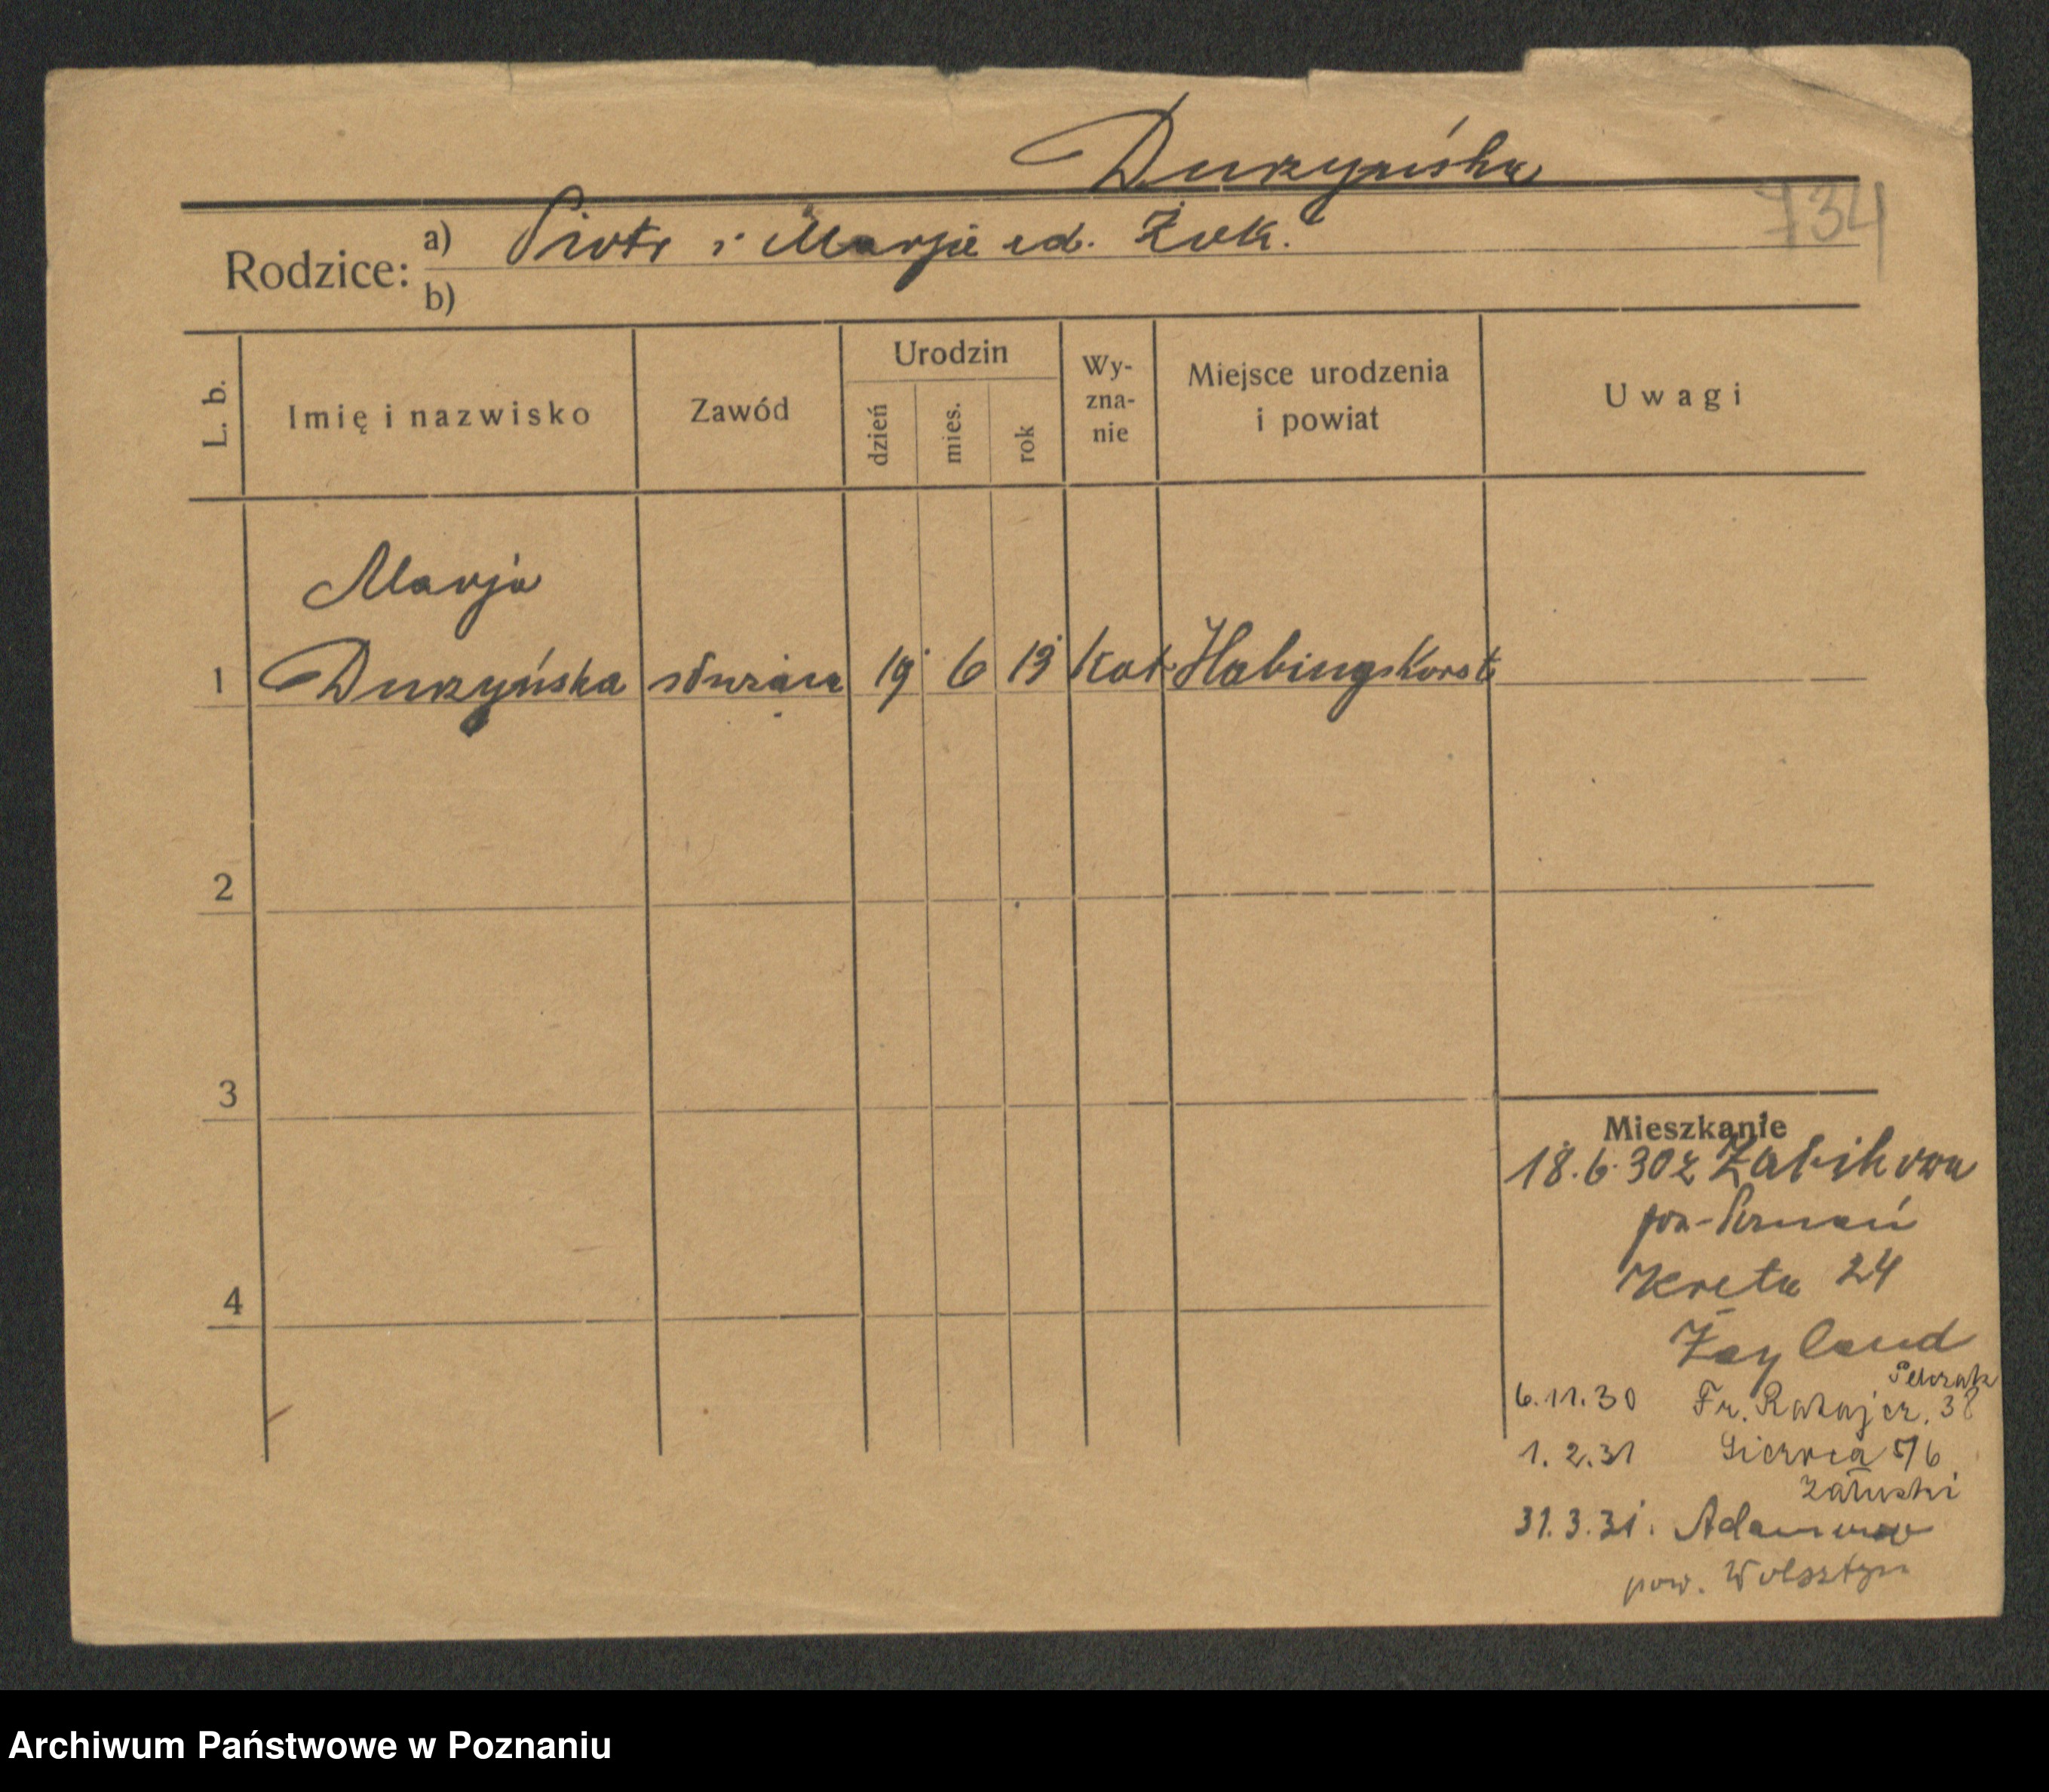 Durzyńska
734
Rodzice: a) Piotr i Marja ud. Żok.
b)
L. b.
Imię i nazwisko
Zawód
Urodzin
dzień
mies.
rok
Wy-
zna-
nie
Miejsce urodzenia
i powiat
Uwagi
Marja
1 Durzyńska służąca 19 6 13 Kat Habingskorst
2
3
4
Mieszkanie
18.6.30 z Żabikowa
pow-Poznań
Kreta 24
Zayland
6.11.30 Fr. Ratajcz. 38
1.2.31 5/6
Załuski
31.3.31. Adamowo
pow. Wolsztyn
Archiwum Państwowe w Poznaniu